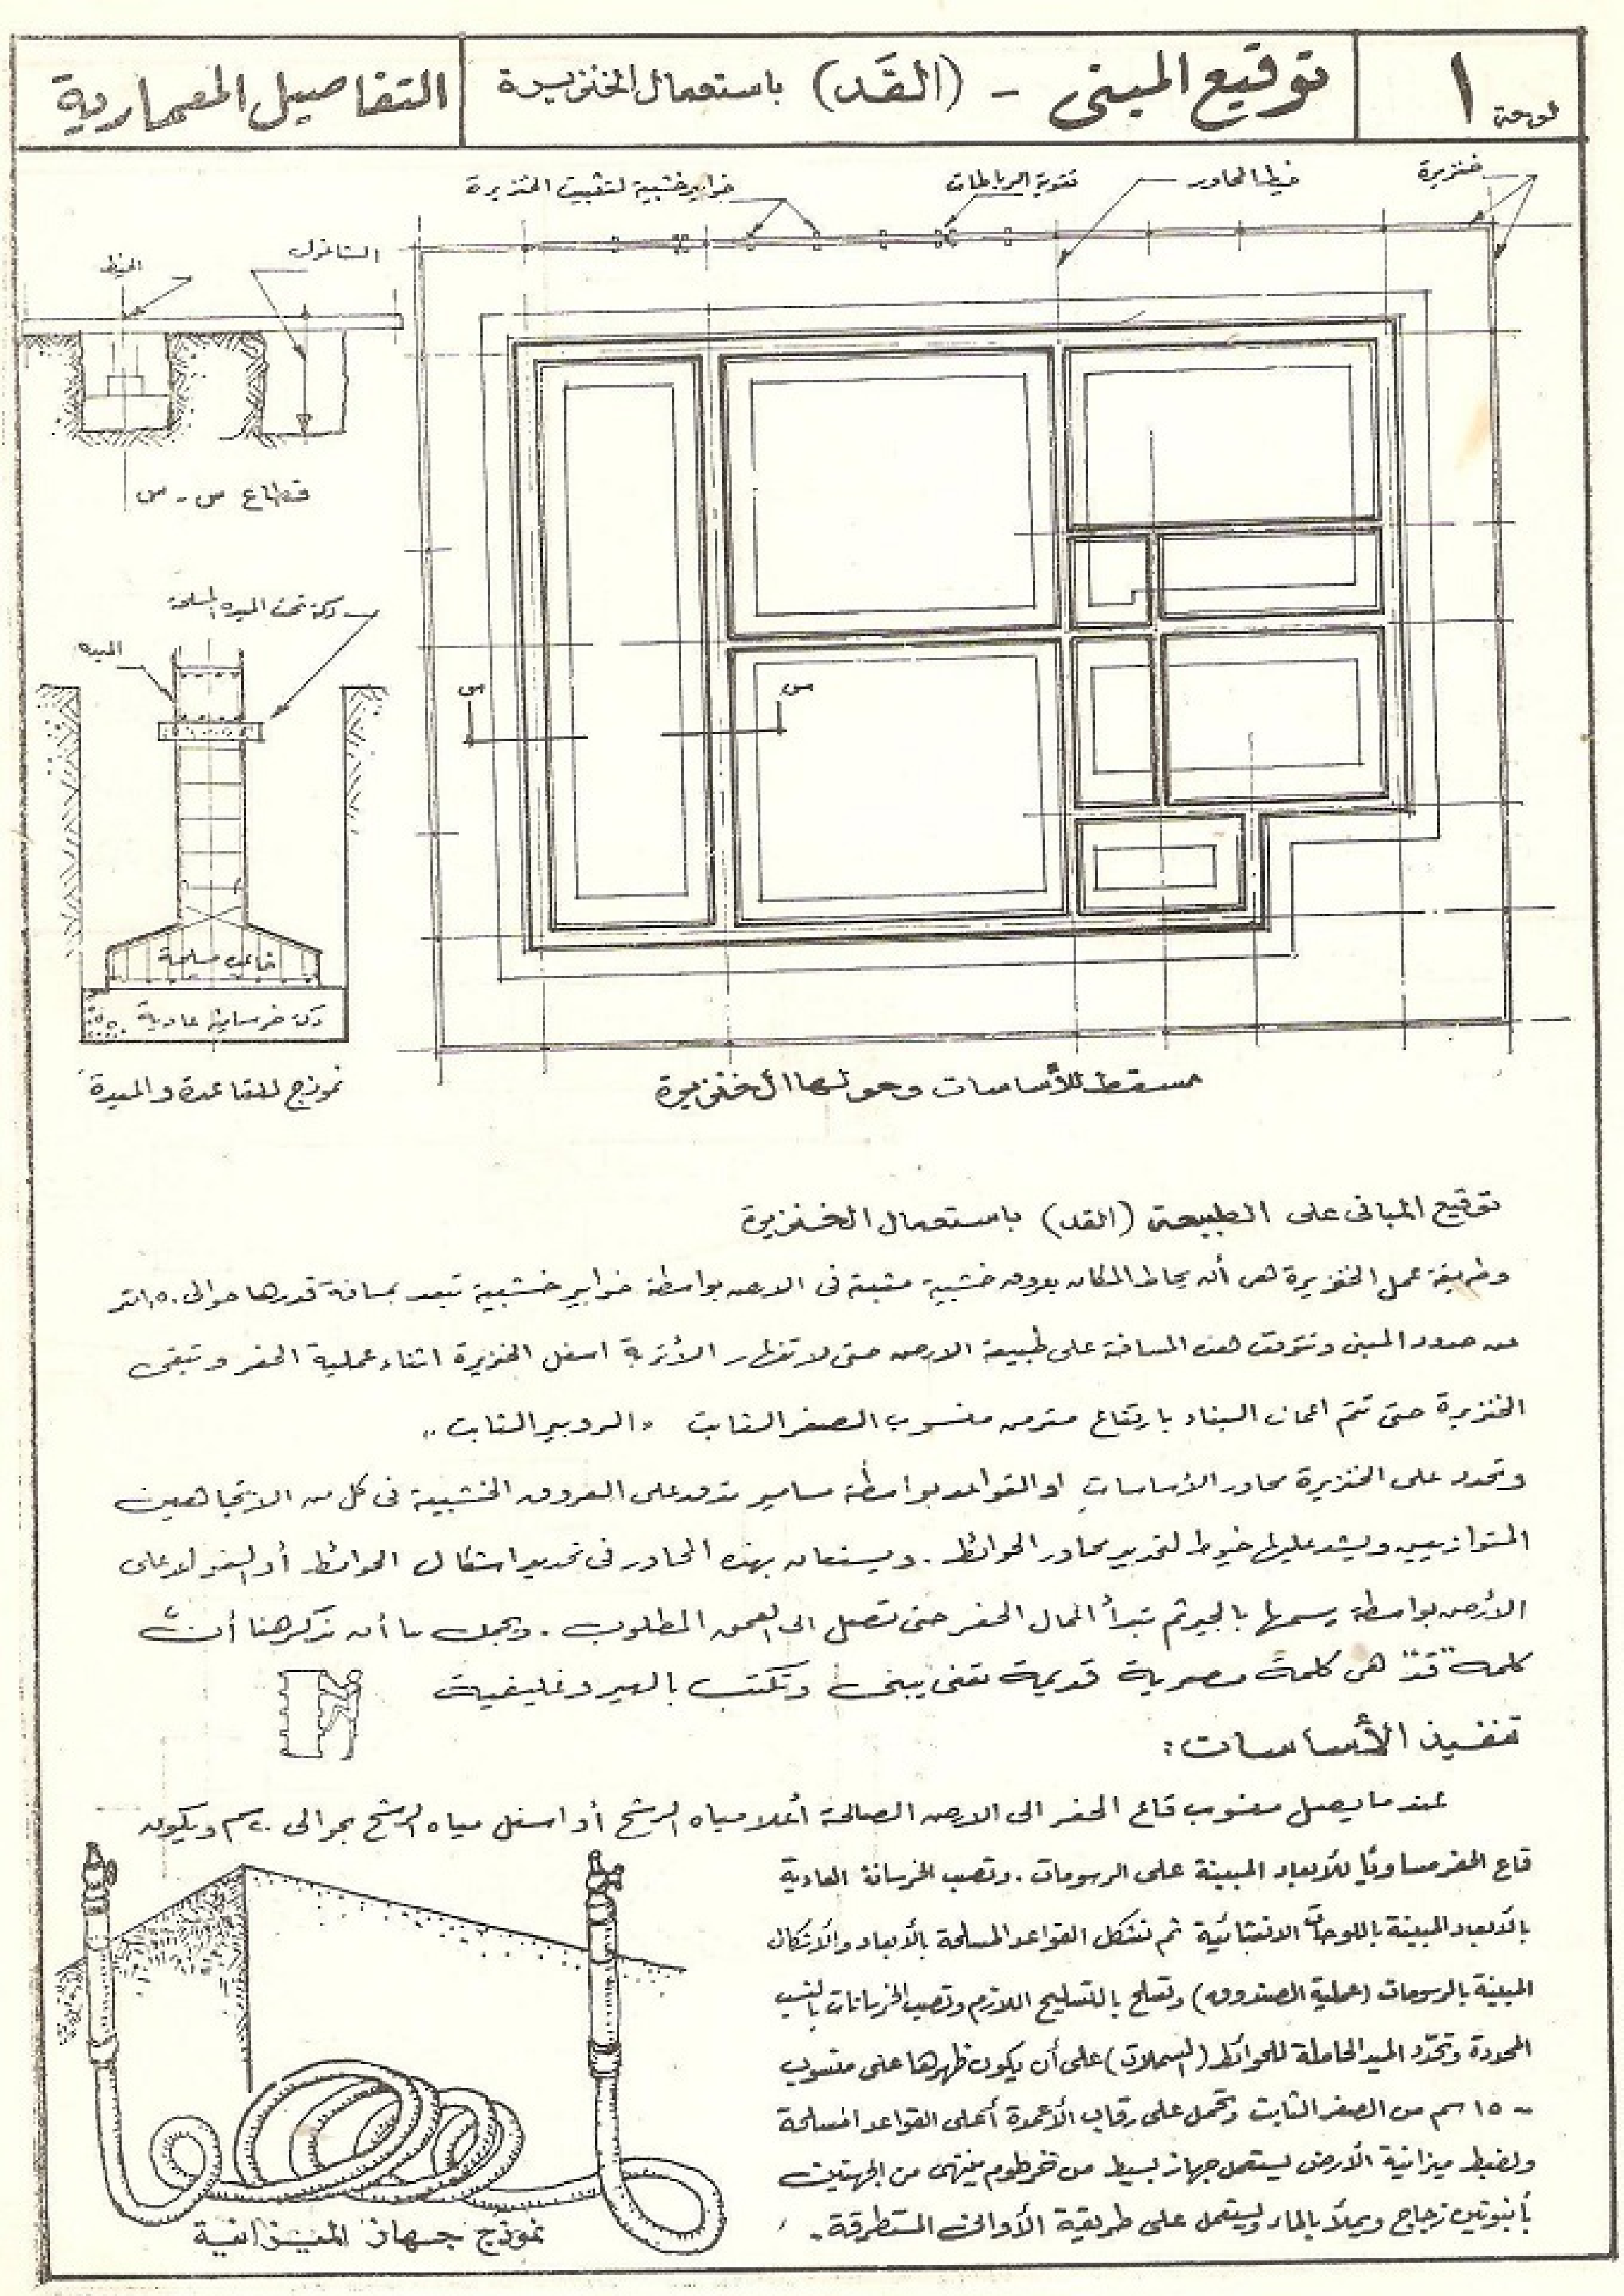 لوحة ١
توقيع المبنى - (القَد) باستعمال الخنزيرة
التفاصيل المعمارية
خنزيرة
خيط المحاور
تقوية الرباطات
خوابير خشبية لتثبيت الخنزيرة
الشاغول
الخيط
قطاع س - س
دكة تحت الميده المسلحة
الميده
س
س
قاعدة مسلحة
دكة خرسانة عادية
نموذج للقاعدة والميدة
مسقط للأساسات وحولها الخنزيرة
توقيع المبانى على الطبيعة (القد) باستعمال الخنزيرة
وطريقة عمل الخنزيرة هى أن يحاط المكان بعروق خشبية مثبتة فى الارض بواسطة خوابير خشبية تبعد بمسافة قدرها حوالى ١,٥٠ متر
من حدود المبنى وتتوقف هذه المسافة على طبيعة الارض حتى لا تنهار الأتربة اسفل الخنزيرة اثناء عملية الحفر وتبقى
الخنزيرة حتى تتم اعمال البناء بارتفاع متر من منسوب الصفر الثابت " الروبير الثابت "
وتحدد على الخنزيرة محاور الأساسات او القواعد بواسطة مسامير تدق على العروق الخشبية فى كل من الاتجاهين
المتوازيين ويشد عليها خيوط لتحديد محاور الحوائط . ويستعان بهذه المحاور فى تحديد اشكال الحوائط أو القواعد على
الأرض بواسطة رسمها بالجير ثم تبدأ اعمال الحفر حتى تصل الى العمق المطلوب . ويجمل بنا أن نذكر هنا أن
كلمة "قد" هى كلمة مصرية قديمة تعنى يبنى وتكتب بالهيروغليفية
تنفيذ الأساسات :
عندما يصل منسوب قاع الحفر الى الارض الصالحة أعلا مياه الرشح أو اسفل مياه الرشح بحوالى ٢٠ سم ويكون
قاع الحفر مساويًا للأبعاد المبينة على الرسومات . وتصب الخرسانة العادية
بالأبعاد المبينة باللوحات الانشائية ثم تشكل القواعد المسلحة بالأبعاد والأشكال
المبينة بالرسومات (عملية الصندوق) وتسلح بالتسليح اللازم وتصب الخرسانات بالنسب
المحددة وتحدّد الميد الحاملة للحوائط (السملات) على أن يكون ظهرها على منسوب
- ١٥ سم من الصفر الثابت وتحمل على رقاب الأعمدة أعلى القواعد المسلحة
ولضبط ميزانية الأرض يستعمل جهاز بسيط من خرطوم ينتهى من الجهتين
بأنبوبتين زجاج ويملأ بالماء ويستعمل على طريقة الأوانى المستطرقة .
نموذج جهاز الميزانية